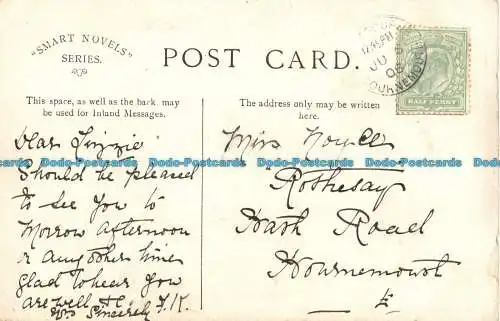 "SMART NOVELS"
SERIES.
POST CARD.
BOURNEMOUTH
JU
06
HALF PENNY
This space, as well as the back may
be used for Inland Messages.
The address only may be written
here.
Dear Lizzie
Should be pleased
to see you to
Morrow afternoon
or any other time
glad to hear you
are well &c.
Yrs Sincerely F.K.
Miss
Rothesay
Bath Road
Bournemouth
E
Do Postcards Do Postcards Do Postcards Do Postcards Do Postcards